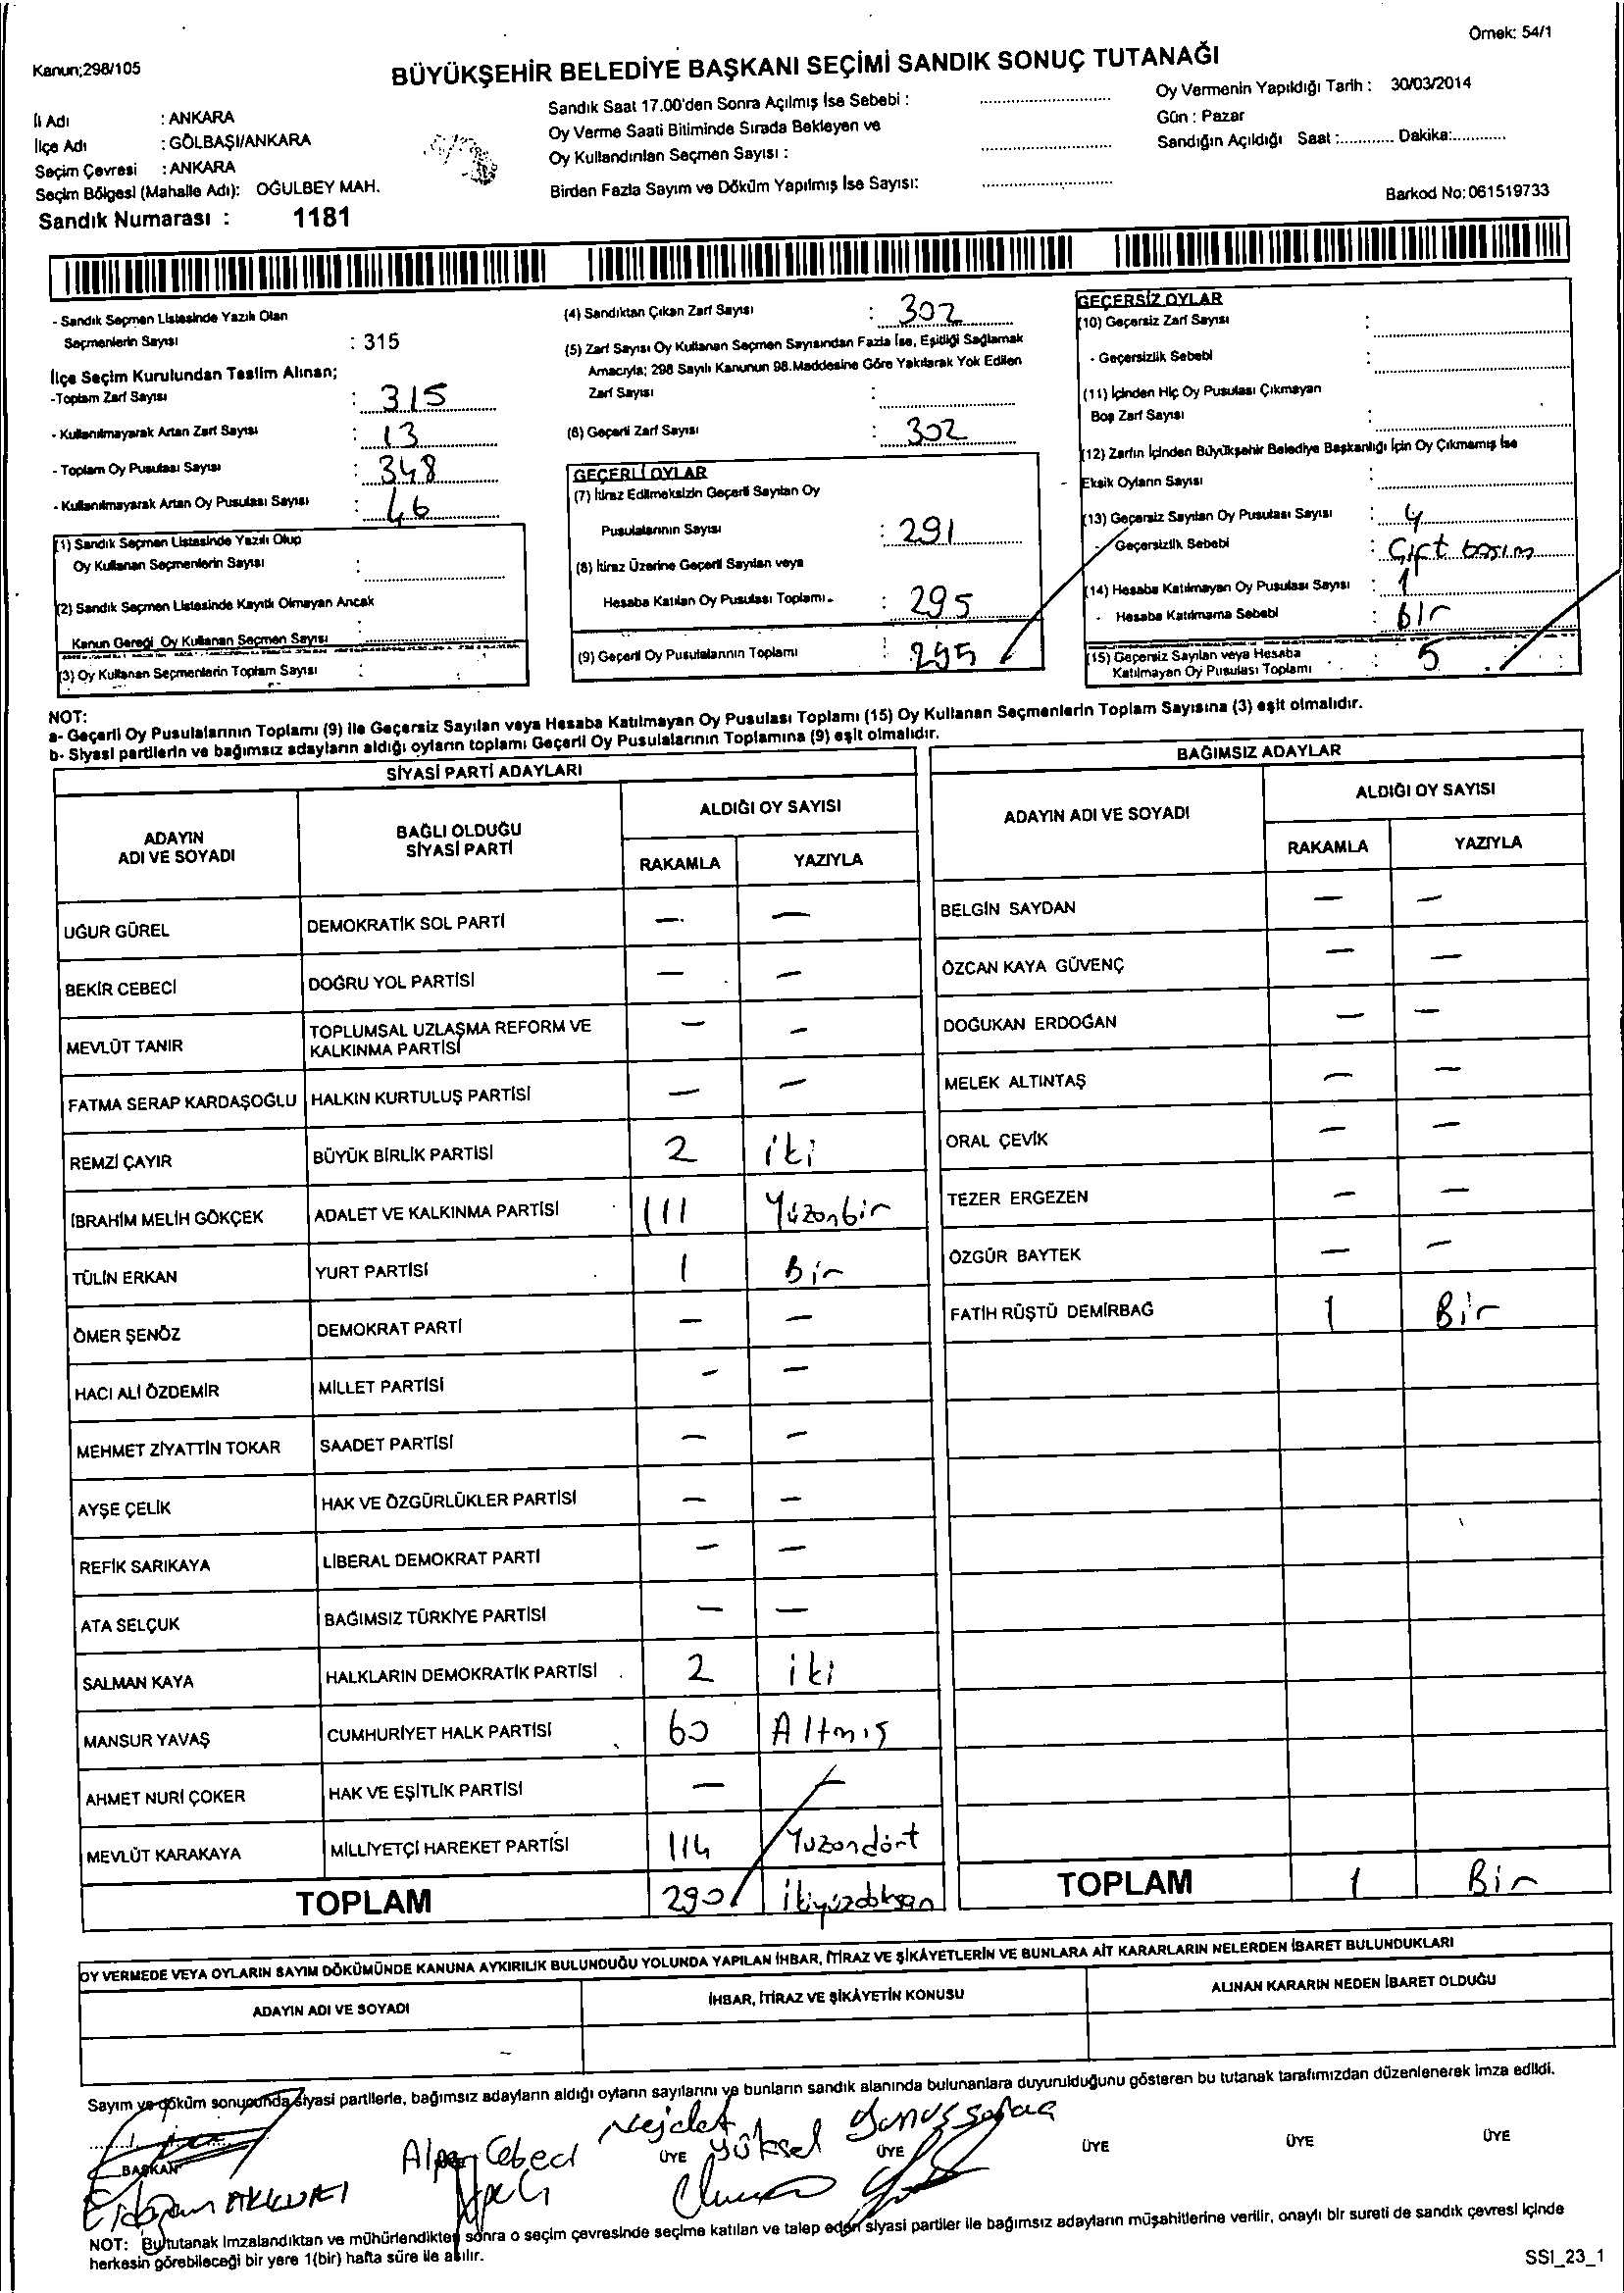 Örnek: 54/1
Kanun;298/105
BÜYÜKŞEHİR BELEDİYE BAŞKANI SEÇİMİ SANDIK SONUÇ TUTANAĞI
İl Adı : ANKARA
İlçe Adı : GÖLBAŞI/ANKARA
Seçim Çevresi : ANKARA
Seçim Bölgesi (Mahalle Adı): OĞULBEY MAH.
Sandık Numarası : 1181
Sandık Saat 17.00'den Sonra Açılmış İse Sebebi :
Oy Verme Saati Bitiminde Sırada Bekleyen ve
Oy Kullandırılan Seçmen Sayısı :
Birden Fazla Sayım ve Döküm Yapılmış İse Sayısı:
Oy Vermenin Yapıldığı Tarih : 30/03/2014
Gün : Pazar
Sandığın Açıldığı Saat :............ Dakika:............
Barkod No: 061519733
- Sandık Seçmen Listesinde Yazılı Olan
Seçmenlerin Sayısı : 315
İlçe Seçim Kurulundan Teslim Alınan;
-Toplam Zarf Sayısı : 315
- Kullanılmayarak Artan Zarf Sayısı : 13
- Toplam Oy Pusulası Sayısı : 348
- Kullanılmayarak Artan Oy Pusulası Sayısı : 46
(1) Sandık Seçmen Listesinde Yazılı Olup
Oy Kullanan Seçmenlerin Sayısı :
(2) Sandık Seçmen Listesinde Kayıtlı Olmayan Ancak
Kanun Gereği Oy Kullanan Seçmen Sayısı :
(3) Oy Kullanan Seçmenlerin Toplam Sayısı :
(4) Sandıktan Çıkan Zarf Sayısı : 302
(5) Zarf Sayısı Oy Kullanan Seçmen Sayısından Fazla İse, Eşitliği Sağlamak
Amacıyla; 298 Sayılı Kanunun 98.Maddesine Göre Yakılarak Yok Edilen
Zarf Sayısı :
(6) Geçerli Zarf Sayısı : 302
GEÇERLİ OYLAR
(7) İtiraz Edilmeksizin Geçerli Sayılan Oy
Pusulalarının Sayısı : 291
(8) İtiraz Üzerine Geçerli Sayılan veya
Hesaba Katılan Oy Pusulası Toplamı : 295
(9) Geçerli Oy Pusulalarının Toplamı : 295
GEÇERSİZ OYLAR
(10) Geçersiz Zarf Sayısı :
- Geçersizlik Sebebi :
(11) İçinden Hiç Oy Pusulası Çıkmayan
Boş Zarf Sayısı :
(12) Zarfın İçinden Büyükşehir Belediye Başkanlığı İçin Oy Çıkmamış İse
Eksik Oyların Sayısı :
(13) Geçersiz Sayılan Oy Pusulası Sayısı : 4
- Geçersizlik Sebebi : Çift basım
(14) Hesaba Katılmayan Oy Pusulası Sayısı : 1
- Hesaba Katılmama Sebebi : Bir
(15) Geçersiz Sayılan veya Hesaba
Katılmayan Oy Pusulası Toplamı : 5
NOT:
a- Geçerli Oy Pusulalarının Toplamı (9) ile Geçersiz Sayılan veya Hesaba Katılmayan Oy Pusulası Toplamı (15) Oy Kullanan Seçmenlerin Toplam Sayısına (3) eşit olmalıdır.
b- Siyasi partilerin ve bağımsız adayların aldığı oyların toplamı Geçerli Oy Pusulalarının Toplamına (9) eşit olmalıdır.
SİYASİ PARTİ ADAYLARI
ADAYIN ADI VE SOYADI BAĞLI OLDUĞU SİYASİ PARTİ ALDIĞI OY SAYISI
RAKAMLA YAZIYLA
UĞUR GÜREL DEMOKRATİK SOL PARTİ — —
BEKİR CEBECİ DOĞRU YOL PARTİSİ — —
MEVLÜT TANIR TOPLUMSAL UZLAŞMA REFORM VE KALKINMA PARTİSİ — —
FATMA SERAP KARDAŞOĞLU HALKIN KURTULUŞ PARTİSİ — —
REMZİ ÇAYIR BÜYÜK BİRLİK PARTİSİ 2 iki
İBRAHİM MELİH GÖKÇEK ADALET VE KALKINMA PARTİSİ 111 Yüzonbir
TÜLİN ERKAN YURT PARTİSİ 1 Bir
ÖMER ŞENÖZ DEMOKRAT PARTİ — —
HACI ALİ ÖZDEMİR MİLLET PARTİSİ — —
MEHMET ZİYATTİN TOKAR SAADET PARTİSİ — —
AYŞE ÇELİK HAK VE ÖZGÜRLÜKLER PARTİSİ — —
REFİK SARIKAYA LİBERAL DEMOKRAT PARTİ — —
ATA SELÇUK BAĞIMSIZ TÜRKİYE PARTİSİ — —
SALMAN KAYA HALKLARIN DEMOKRATİK PARTİSİ 2 iki
MANSUR YAVAŞ CUMHURİYET HALK PARTİSİ 60 Altmış
AHMET NURİ ÇOKER HAK VE EŞİTLİK PARTİSİ — —
MEVLÜT KARAKAYA MİLLİYETÇİ HAREKET PARTİSİ 114 Yuzondört
TOPLAM 290 İkiyüzdoksan
BAĞIMSIZ ADAYLAR
ADAYIN ADI VE SOYADI ALDIĞI OY SAYISI
RAKAMLA YAZIYLA
BELGİN SAYDAN — —
ÖZCAN KAYA GÜVENÇ — —
DOĞUKAN ERDOĞAN — —
MELEK ALTINTAŞ — —
ORAL ÇEVİK — —
TEZER ERGEZEN — —
ÖZGÜR BAYTEK — —
FATİH RÜŞTÜ DEMİRBAĞ 1 Bir
TOPLAM 1 Bir
OY VERMEDE VEYA OYLARIN SAYIM DÖKÜMÜNDE KANUNA AYKIRILIK BULUNDUĞU YOLUNDA YAPILAN İHBAR, İTİRAZ VE ŞİKÂYETLERİN VE BUNLARA AİT KARARLARIN NELERDEN İBARET BULUNDUKLARI
ADAYIN ADI VE SOYADI İHBAR, İTİRAZ VE ŞİKÂYETİN KONUSU ALINAN KARARIN NEDEN İBARET OLDUĞU
Sayım ve döküm sonucunda siyasi partilerle, bağımsız adayların aldığı oyların sayılarını ve bunların sandık alanında bulunanlara duyurulduğunu gösteren bu tutanak tarafımızdan düzenlenerek imza edildi.
Alper Cebeci Nejdet Yüksel Yunus
BAŞKAN ÜYE ÜYE ÜYE ÜYE ÜYE
NOT: Bu tutanak imzalandıktan ve mühürlendikten sonra o seçim çevresinde seçime katılan ve talep eden siyasi partiler ile bağımsız adayların müşahitlerine verilir, onaylı bir sureti de sandık çevresi içinde
herkesin görebileceği bir yere 1(bir) hafta süre ile asılır.
SSI_23_1